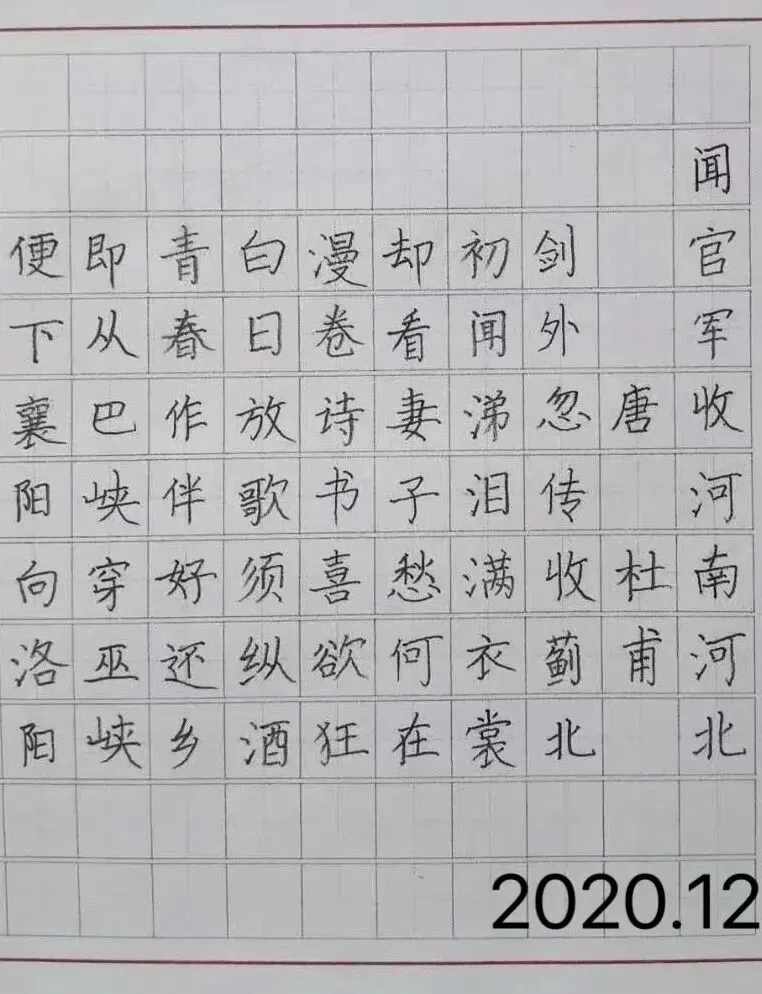 闻官军收河南河北
唐 杜甫
剑外忽传收蓟北
初闻涕泪满衣裳
却看妻子愁何在
漫卷诗书喜欲狂
白日放歌须纵酒
青春作伴好还乡
即从巴峡穿巫峡
便下襄阳向洛阳
2020.12